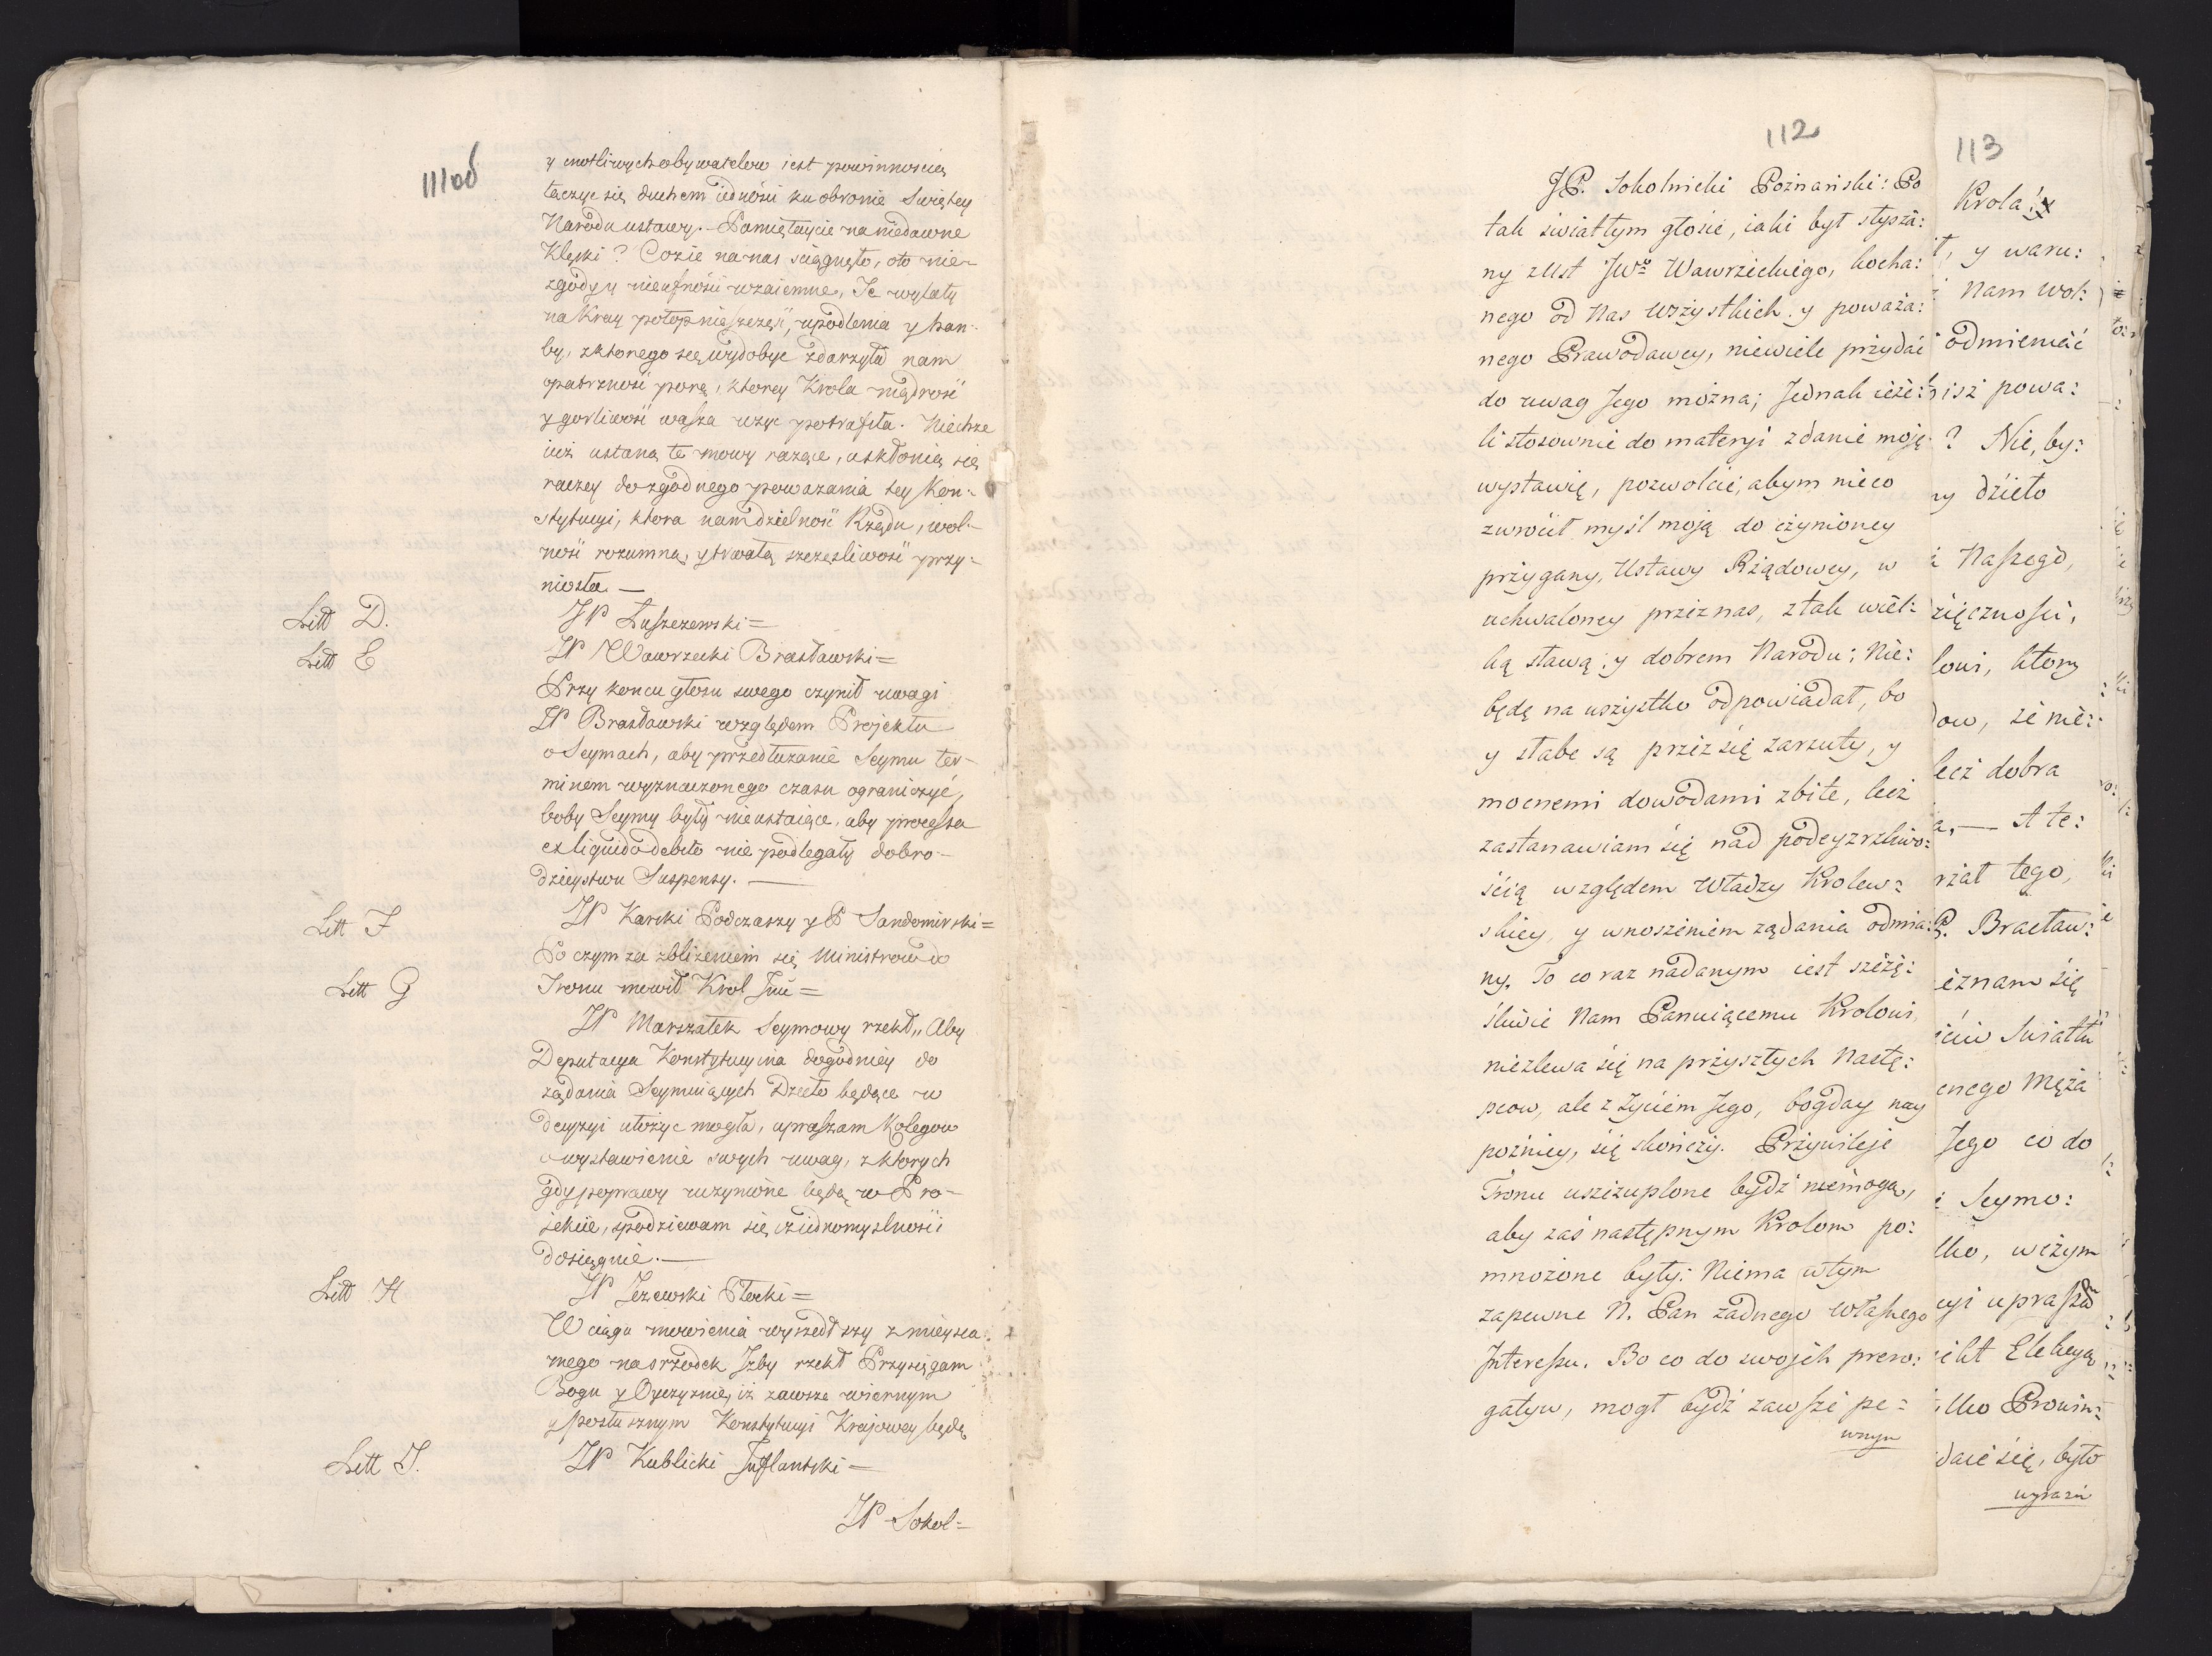 111об
y cnotliwych obywatelow iest powinnoscią
łączyc się duchem iednośći ku obronie Swiętey
Narodu ustawy. Pamiętaycie na niedawne
Klęski? Cozie na nas sciągnęło, oto nie-
zgody y nieufnośći wzaiemne, Te wylały
na Kray potop nieszczęść, upodlenia y han-
by, z ktorego się wydobyc zdarzyła nam
opatrznosc porę, ktorey Krola mądrość
y gorliwość wasza uzyc potrafiła. Niechze
iuż ustaną te mowy rażące, a skłonią się
raczey do zgodnego powazania tey Kon-
stytucyi, ktora nam dzielność Rządu, wol-
ność rozumną, y trwałą szczęśliwość przy-
niosła. —
Litt D.
JP Łuszczewski =
Litt E
JP Wawrzecki Brasławski =
Przy koncu głosu swego czynił uwagi
JP Brasławski względem Projektu
o Seymach, aby przedłużanie Seymu ter-
minem wyznaczonego czasu ograniczyć,
boby Seymy były nieustaiące, aby processa
ex liquido debito nie podlegały dobro-
dzieystwu Suspensy. —
Litt F
JP Karski Podczaszy y P Sandomirski =
Po czym za zbliżeniem się Ministrow do
Litt G
Tronu mowił Krol Jmć =
JP Marszałek Seymowy rzekł „ Aby
Deputacya Konstytucyina dogodniey do
żądania Seymuiących Dzieło będące w
decyzyi ułożyc mogła, upraszam Kolegow
o wystawienie swych uwag, z ktorych
gdy poprawy uczynione będą w Pro-
iekcie, spodziewam się iż iednomyslności
dosięgnie. —
Litt H
JP Jezewski Płocki =
W ciągu mowienia wyszedłszy z mieysca
swego na srzodek Izby rzekł Przysięgam
Bogu y Oyczyznie, iż zawsze wiernym
y posłusznym Konstytucyi Krajowey będę
Litt I.
JP Kublicki Inflantski =
JP Sokol=
112
JP. Sokolnicki Poznański: Po
tak światłym głosie, iaki był słysza:
ny z Ust JWo Wawrzeckiego, kocha:
nego od Nas wszystkich y poważa:
nego Prawodawcy, niewiele przydać
do uwag Jego można; Jednak ieże:
li stosownie do materyi zdanie moję
wystawię, pozwolcie, abym nieco
zwrócił myśl moją do czynioney
przygany, Ustawy Rządowey, w
uchwaloney przez nas, z tak wiel:
ką sławą, y dobrem Narodu; Nie:
będę na wszystko odpowiadał, bo
y słabe są przez się zarzuty, y
mocnemi dowodami zbite, lecz
zastanawiam się nad podeyzrzliwo:
ścią względem Władzy Krolew:
skiey, y wnoszeniem żądania odmia:
ny. To co raz nadanym iest szczę:
śliwie Nam Panuiącemu Krolowi,
niezlewa się na przyszłych Nastę:
pcow, ale z życiem Jego, bogday nay
pożniey, się skończy. Przywileje
Tronu uszczuplone bydź niemogą,
aby zaś następnym Krolom po:
mnożone były: Niema w tym
zapewne N. Pan żadnego własnego
Interessu. Bo co do swojch prero:
gatyw, mogł bydź zawsze pe:
wnym
113
Krola; y
, y waru:
Nam wol:
odmienić
isz powa:
? Nie, by:
ny dzieło
Naszego,
zięcznosci,
lowi, ktory
dow, że nie:
lecz dobra
— A te:
rzał tego,
P. Bracław:
eznam się
Światłu
cnego Męża
Jego co do
Seymo:
lko, wczym
cyi uprasza
Elekcyą
lko Prowin:
daie się, było
wyrazić